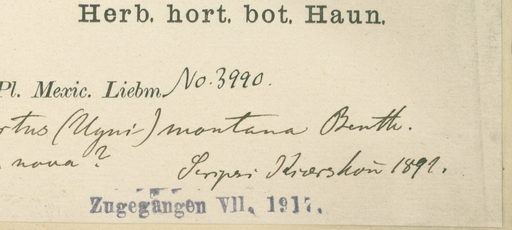 Herb. hort. bot. Haun.
Pl. Mexic. Liebm. No. 3990.
rtus (Ugni) montana Benth.
nova? Scripsi Kiærskou 1891.
Zugegangen VII. 1917.